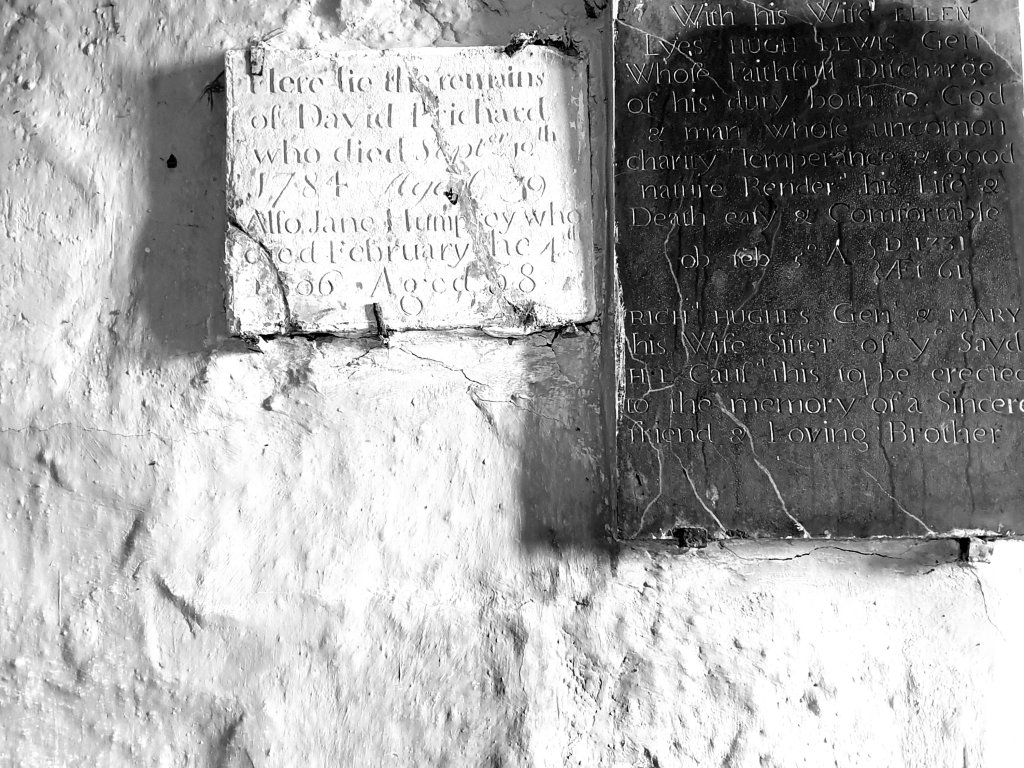 Here lie the remains
of David Prichard
who died Septer 19th
1784 Aged 39
Alſo Jane Humphrey who
died February the 4th
1786 Aged 38
With his Wife ELLEN
Lyes HUGH LEWIS Gent
Whoſe Faithfull Diſcharge
of his duty both to God
& man whoſe uncomon
charity Temperance & good
nature Render'd his Life &
Death eaſy & Comfortable
ob feb A D 1731
Æt 61
RICH HUGHES Gent & MARY
his Wife Siſter of ye Sayd
H L Cauſ'd this to be erected
to the memory of a Sincere
friend & Loving Brother